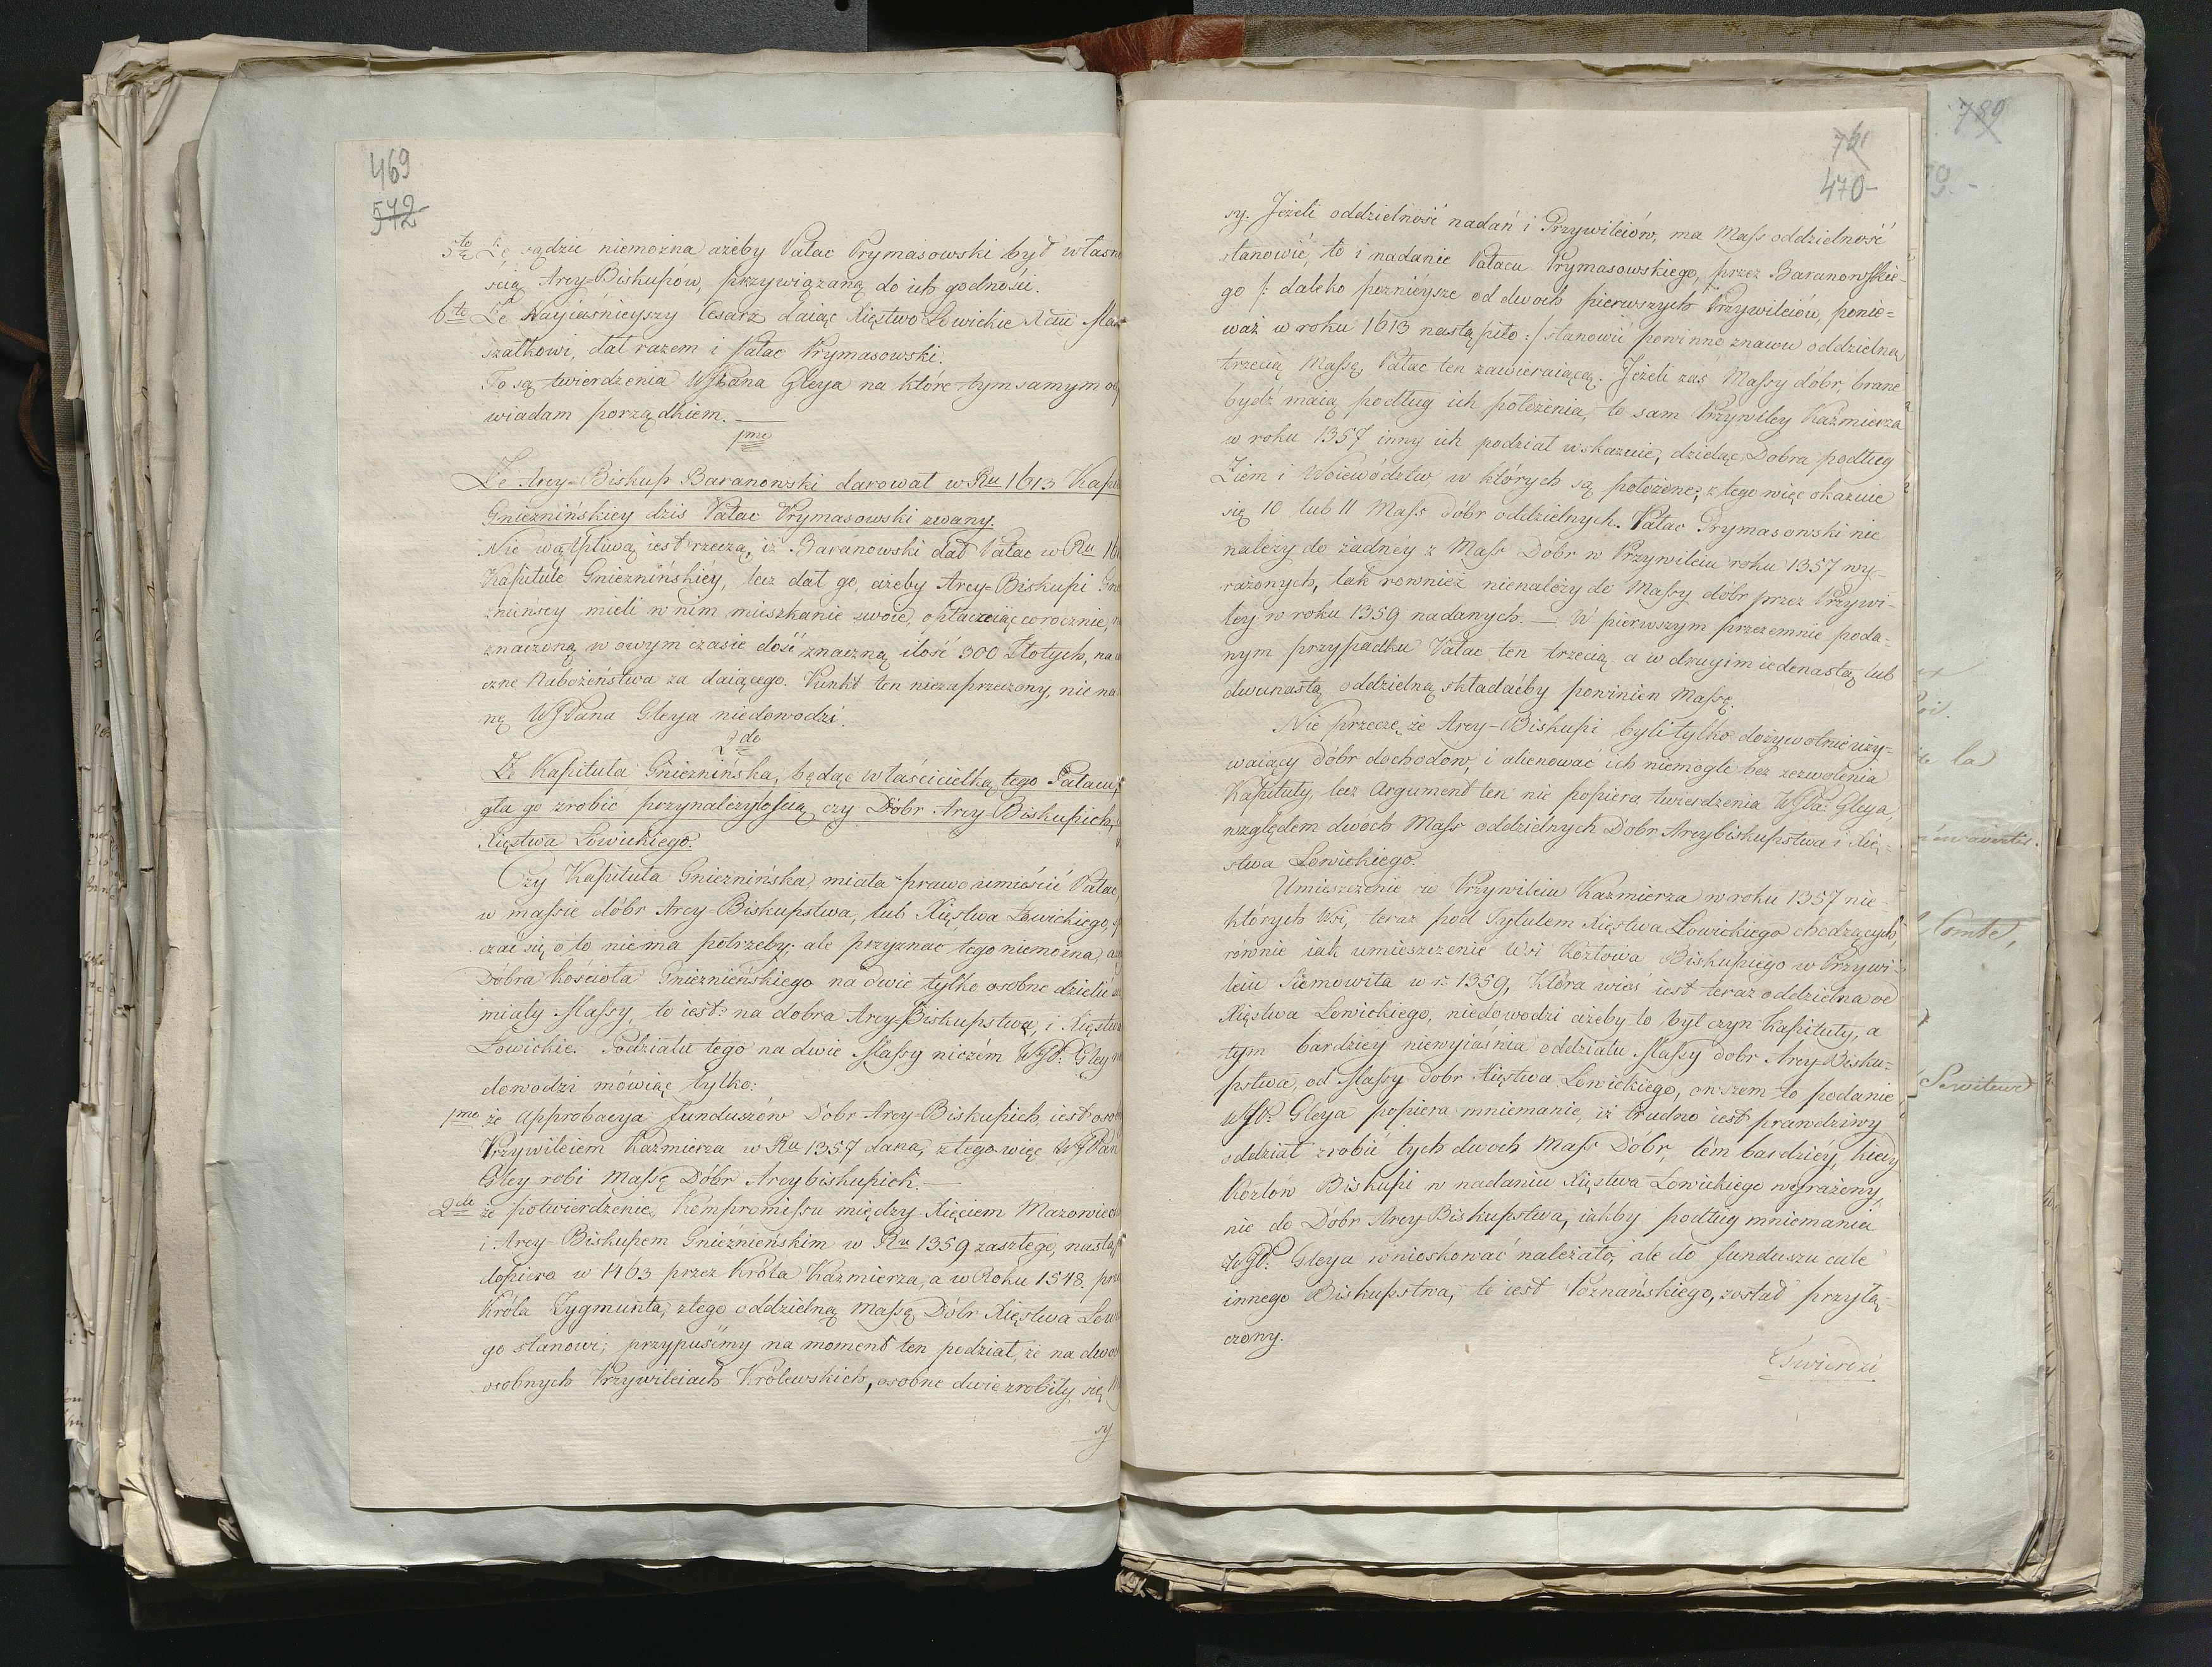 469
542
5te Że sądzić niemożna ażeby Pałac Prymasowski był własn
ścią Arcy-Biskupów, przywiązaną do ich godności.
6te Że Nayiaśnieyszy Cesarz daiąc Xięstwo Łowickie Xciu Mar
szałkowi, dał razem i Pałac Prymasowski.
To są twierdzenia WJPana Gleya na które tym samym od
wiadam porządkiem. —
1me
Że Arcy-Biskup Baranowski darował w Ru 1613 Kapi
Gnieznińskiey dziś Pałac Prymasowski zwany.
Nie wątpliwą iest rzeczą, iż Baranowski dał Pałac w Ru 16
Kapitule Gnieznińskiéy, lecz dał go, ażeby Arcy-Biskupi Gnie
znieńscy mieli w nim mieszkanie swoie, opłacaiąc corocznie,
znaczoną w owym czasie dość znaczną ilość 300 Złotych, na
czne Nabożeństwa za daiącego. Punkt ten niezaprzeczony, nic na
nę WJPana Gleya niedowodzi.
2do
Że Kapituła Gnieznińska, będąc właścicielką tego Pałacu,
gła go zrobić przynależytością czy Dóbr Arcy-Biskupich,
Xięstwa Łowickiego.
Czy Kapituła Gnieznińska miała prawo umieścić Pałac,
w massie dóbr Arcy-Biskupstwa, lub Xięstwa Łowickiego,
czać się o to niema potrzeby; ale przyznać tego niemożna,
Dobra kościoła Gnieznieńskiego na dwie tylko osobne dzielić
miały Massy, to iest: na dobra Arcy-Biskupstwa, i Xięstwo
Łowickie. Podziału tego na dwie Massy niczém WJP. Gley
dowodzi mówiąc tylko:
1mo że Approbacya funduszów Dobr Arcy-Biskupich, iest oso
Przywileiem Kaźmierza w Ru 1357 dana, z tego więc WJPan
Gley robi Massę Dóbr Arcybiskupich. —
2do że potwierdzenie Kompromissu między Xięciem Mazowiec
i Arcy-Biskupem Gnieznieńskim w Ru 1359 zaszłego, nastą
dopiero w 1463 przez Króla Kaźmierza, a w Roku 1548 prz
Króla Zygmunta, z tego oddzielną Massę Dóbr Xięstwa Łow
go stanowi; przypuśćmy na moment ten podział, że na dwo
osobnych Przywileiach Królewskich, osobne dwie zrobiły się
sy
761
470-
sy. Jeżeli oddzielność nadań i Przywileiów, ma Mass oddzielność
stanowić, to i nadanie Pałacu Prymasowskiego, przez Baranowskie-
go /: daleko poznieysze od dwóch pierwszych Przywileiów, ponie=
waż w roku 1613 nastąpiło :/ stanowić powinno znowu oddzielną
trzecią Massę, Pałac ten zawieraiącą. Jeżeli zaś Massy dóbr brane
bydź maią podług ich położenia, to sam Przywiley Kaźmierza
w roku 1357 inny ich podział wskazuie, dzieląc Dobra podług
Ziem i Woiewództw w których są położone; z tego więc okazuie
się 10 lub 11 Mass dóbr oddzielnych. Pałac Prymasowski nie
należy do żadnéy z Mass Dobr w Przywileiu roku 1357 wy-
rażonych, tak rownież nienależy do Massy dóbr przez Przywi-
ley w roku 1359 nadanych. — W pierwszym przezemnie poda-
nym przypadku Pałac ten trzecią a w drugim iedenastą lub
dwunastą oddzielną składaćby powinien Massę.
Nie przeczę, że Arcy-Biskupi byli tylko dożywotnie uży-
waiący dóbr dochodów, i alienować ich niemogli bez zezwolenia
Kapituły, lecz Argument ten nie popiera twierdzenia WJPa: Gleya,
względem dwóch Mass oddzielnych Dóbr Arcybiskupstwa i Xię-
stwa Łowickiego.
Umieszczenie w Przywileiu Kaźmierza w roku 1357 nie-
których Wsi, teraz pod Tytułem Xięstwa Łowickiego chodzących,
równie iak umieszczenie Wsi Kozłowa Biskupiego w Przywi-
leiu Ziemowita w r: 1359, która wieś iest teraz oddzielna od
Xięstwa Łowickiego, niedowodzi ażeby to był czyn Kapituły, a
tym bardziey niewyiaśnia oddziału Massy dobr Arcy Bisku-
pstwa, od Massy dobr Xięstwa Łowickiego, owszem to podanie
WJP. Gleya popiera mniemanie, iż trudno iest prawdziwy
oddział zrobić tych dwoch Mass Dóbr, tém bardziéy, kiedy
Kozłów Biskupi w nadaniu Xięstwa Łowickiego wyrażony,
nie do Dóbr Arcy Biskupstwa, iakby podług mniemania
WJP. Gleya wnioskować należało, ale do funduszu cale
innego Biskupstwa, to iest Poznańskiego, został przyłą-
czony.
Twierdzi
789
la
Comte,